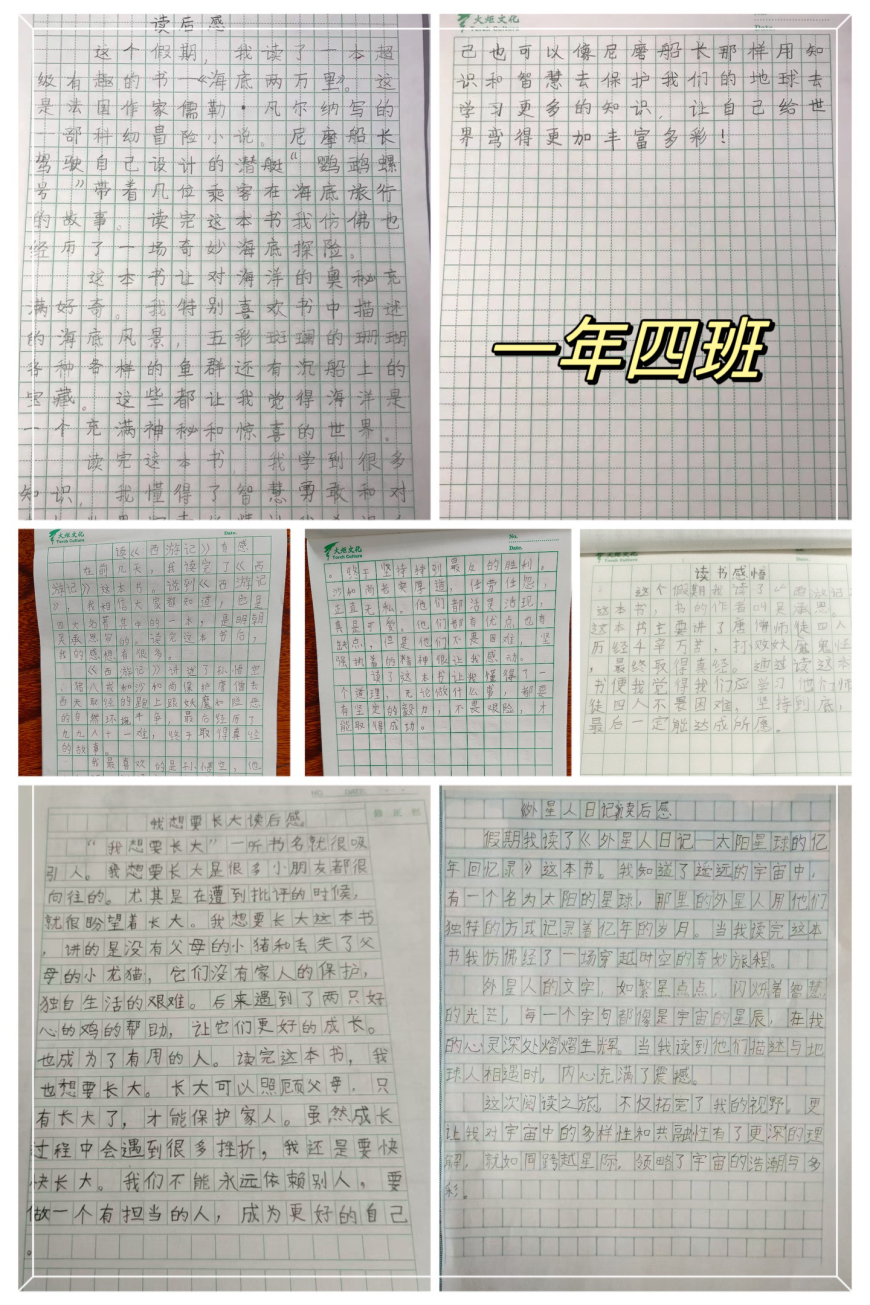 读后感
这个假期，我读了一本超
级有趣的书—《海底两万里》。这
是法国作家儒勒·凡尔纳写的
一部科幻冒险小说。尼摩船长
驾驶自己设计的潜艇“鹦鹉螺
号”带着几位乘客在海底旅行
的故事。读完这本书我仿佛也
经历了一场奇妙海底探险。
这本书让对海洋的奥秘充
满好奇。我特别喜欢书中描述
的海底风景，五彩斑斓的珊瑚
各种各样的鱼群还有沉船上的
宝藏。这些都让我觉得海洋是
一个充满神秘和惊喜的世界。
读完这本书，我学到很多
知识，我懂得了智慧勇敢和对
大炬文化
Torch Culture
己也可以像尼磨船长那样用知
识和智慧去保护我们的地球去
学习更多的知识，让自己给世
界弯得更加丰富多彩！
一年四班
大炬文化
Torch Culture
Date.
读《西游记》有感
在前几天，我读完了《西
游记》这本书。说到《西游记
》，我相信大家都知道，它是
四大名著其中的一本，是明朝
吴承恩写的。读完这本书后，
我的感想有很多。
《西游记》讲述了孙悟空
、猪八戒和沙和尚保护唐僧去
西天取经的路上跟妖魔和险恶
的自然环境斗争，最后经历了
九九八十一难，终于取得真经
的故事。
我最喜欢的是孙悟空，他
大炬文化
Torch Culture
No.
Date.
。终于坚持得到最后的胜利。
沙和尚老实厚道，任劳任怨，
正直无私。他们都活灵活现，
真是可爱。他们都有优点也有
缺点，但是他们不畏困难，坚
强执着的精神很让我感动。
读了这本书让我懂得了一
个道理，无论做什么事，都要
有坚定的毅力，不畏艰险，才
能取得成功。
读书感悟
这个假期我读了《西游记》
这本书，书的作者叫吴承恩。
这本书主要讲了唐僧师徒四人
历经千辛万苦，打败妖魔鬼怪
，最终取得真经。通过读这本
书使我觉得我们应学习他们师
徒四人不畏困难、坚持到底，
最后一定能达成所愿。
我想要长大读后感
“我想要长大”一听书名就很吸
引人。我想要长大是很多小朋友都很
向往的。尤其是在遭到批评的时候，
就很盼望着长大。我想要长大这本书
，讲的是没有父母的小猪和丢失了父
母的小龙猫，它们没有家人的保护，
独自生活的艰难。后来遇到了两只好
心的鸡的帮助，让它们更好的成长。
也成为了有用的人。读完这本书，我
也想要长大。长大可以照顾父母，只
有长大了，才能保护家人。虽然成长
过程中会遇到很多挫折，我还是要快
快长大。我们不能永远依赖别人，要
做一个有担当的人，成为更好的自己
。
《外星人日记》读后感
假期我读了《外星人日记—太阳星球的亿
年回忆录》这本书。我知道了遥远的宇宙中，
有一个名为太阳的星球，那里的外星人用他们
独特的方式记录着亿年的岁月。当我读完这本
书我仿佛经了一场穿越时空的奇妙旅程。
外星人的文字，如繁星点点，闪烁着智慧
的光芒，每一个字句都像是宇宙的星辰，在我
的心灵深处熠熠生辉。当我读到他们描述与地
球人相遇时，内心充满了震撼。
这次阅读之旅，不仅拓宽了我的视野。更
让我对宇宙中的多样性和共融性有了更深的理
解，就如同跨越星际，领略了宇宙的浩瀚与多
彩。